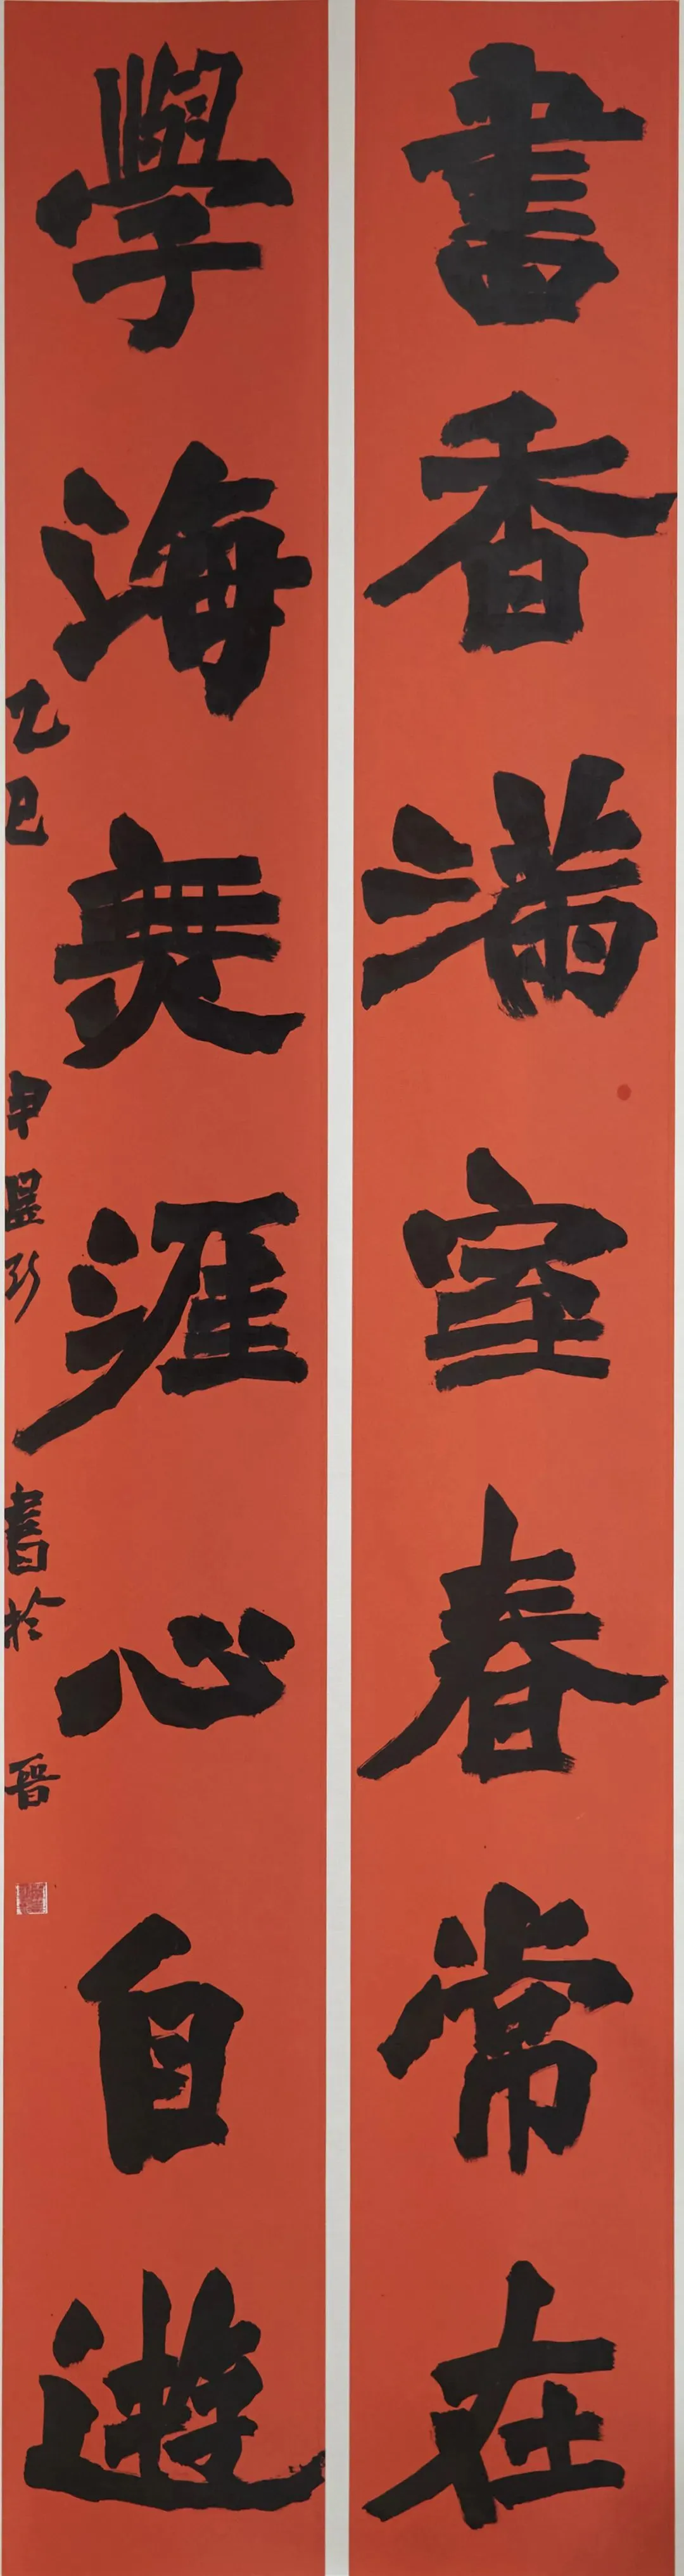 書香滿室春常在
學海無涯心自遊
乙巳 申 書於 晉